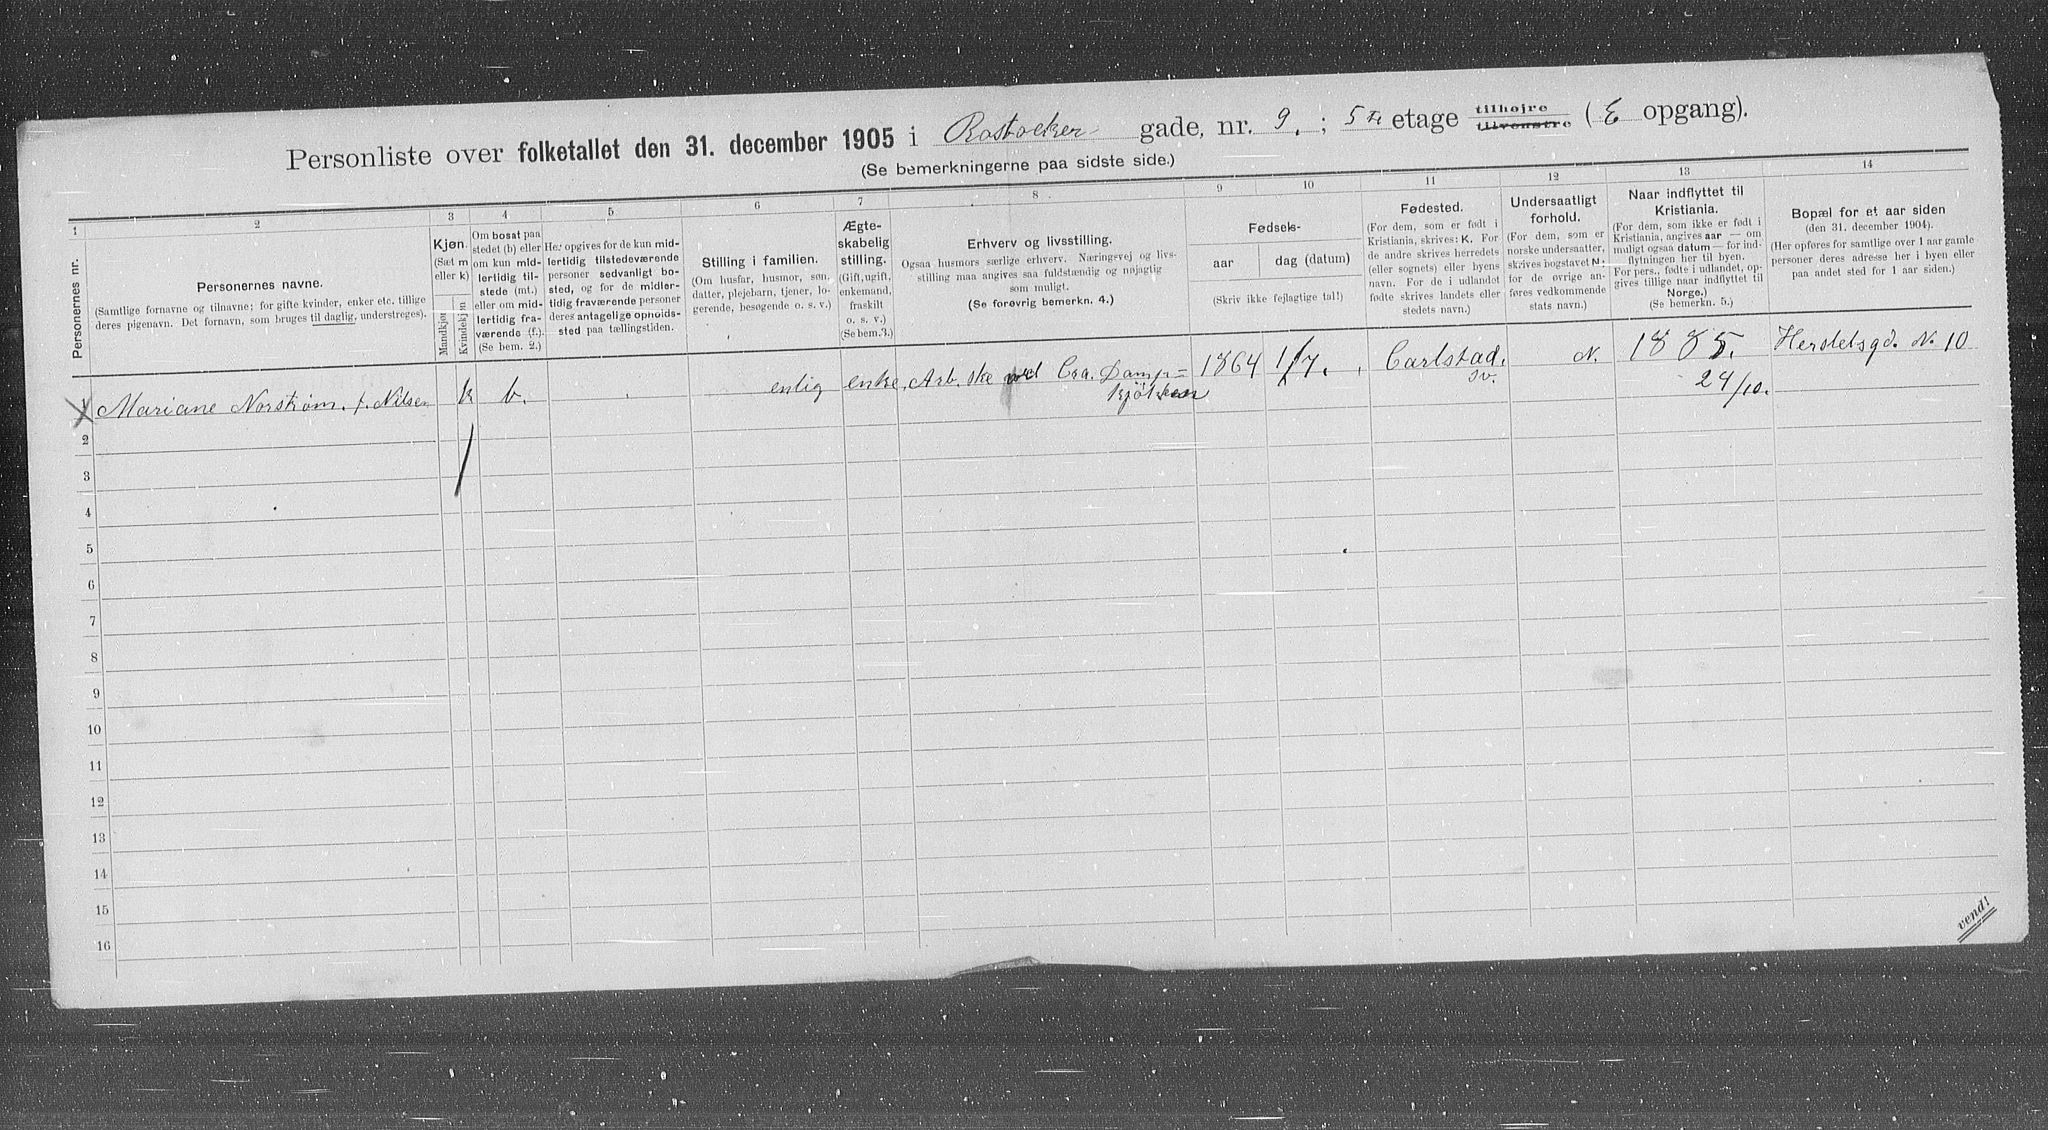 Personliste over folketallet den 31. december 1905 i Rostocker gade, nr. 9. ; 5te etage tilhøjre tilvenstre (E opgang).
(Se bemerkningerne paa sidste side.)
1 2 3 4 5 6 7 8 9 10 11 12 13 14
Personernes nr.
Personernes navne.
(Samtlige fornavne og tilnavne; for gifte kvinder, enker etc. tillige
deres pigenavn. Det fornavn, som bruges til daglig, understreges).
Kjøn.
(Sæt m
eller k)
Mandkjøn.
Kvindekjøn
Om bosat paa
stedet (b) eller
om kun mid-
lertidig til-
stede (mt.)
eller om mid-
lertidig fra-
værende (f.).
(Se bem. 2.)
Her opgives for de kun mid-
lertidig tilstedeværende
personer sedvanligt bo-
sted, og for de midler-
tidig fraværende personer
deres antagelige opholds-
sted paa tællingstiden.
Stilling i familien.
(Om husfar, husmor, søn,
datter, plejebarn, tjener, lo-
gerende, besøgende o. s. v.)
Ægte-
skabelig
stilling.
(Gift, ugift,
enkemand,
fraskilt
o. s. v.)
(Se bem. 3.)
Erhverv og livsstilling.
Ogsaa husmors særlige erhverv. Næringsvej og livs-
stilling maa angives saa fuldstændig og nøjagtig
som muligt.
(Se forøvrig bemerkn. 4.)
Fødsels-
aar
dag (datum)
(Skriv ikke fejlagtige tal!)
Fødested.
(For dem, som er født i
Kristiania, skrives: K. For
de andre skrives herredets
(eller sognets) eller byens
navn. For de i udlandet
fødte skrives landets eller
stedets navn.)
Undersaatligt
forhold.
(For dem, som er
norske undersaatter,
skrives bogstavet N;
for de øvrige an-
føres vedkommende
stats navn.)
Naar indflyttet til
Kristiania.
(For dem, som ikke er født i
Kristiania, angives aar — om
muligt ogsaa datum — for ind-
flytningen her til byen.
For pers., fødte i udlandet, op-
gives tillige naar indflyttet til
Norge.)
(Se bemerkn. 5.)
Bopæl for et aar siden
(den 31. december 1904).
(Her opføres for samtlige over 1 aar gamle
personer deres adresse her i byen eller
paa andet sted for 1 aar siden.)
1 Mariane Norstrøm. f. Nilsen k b. enlig enke. Arb. ske ved Cra. Damp= 1864 1/7. Carlstad. N. 1885. Herslebsgd. N. 10
kjökken sv. 24/10.
2
3
4
5
6
7
8
9
10
11
12
13
14
15
16
vend!